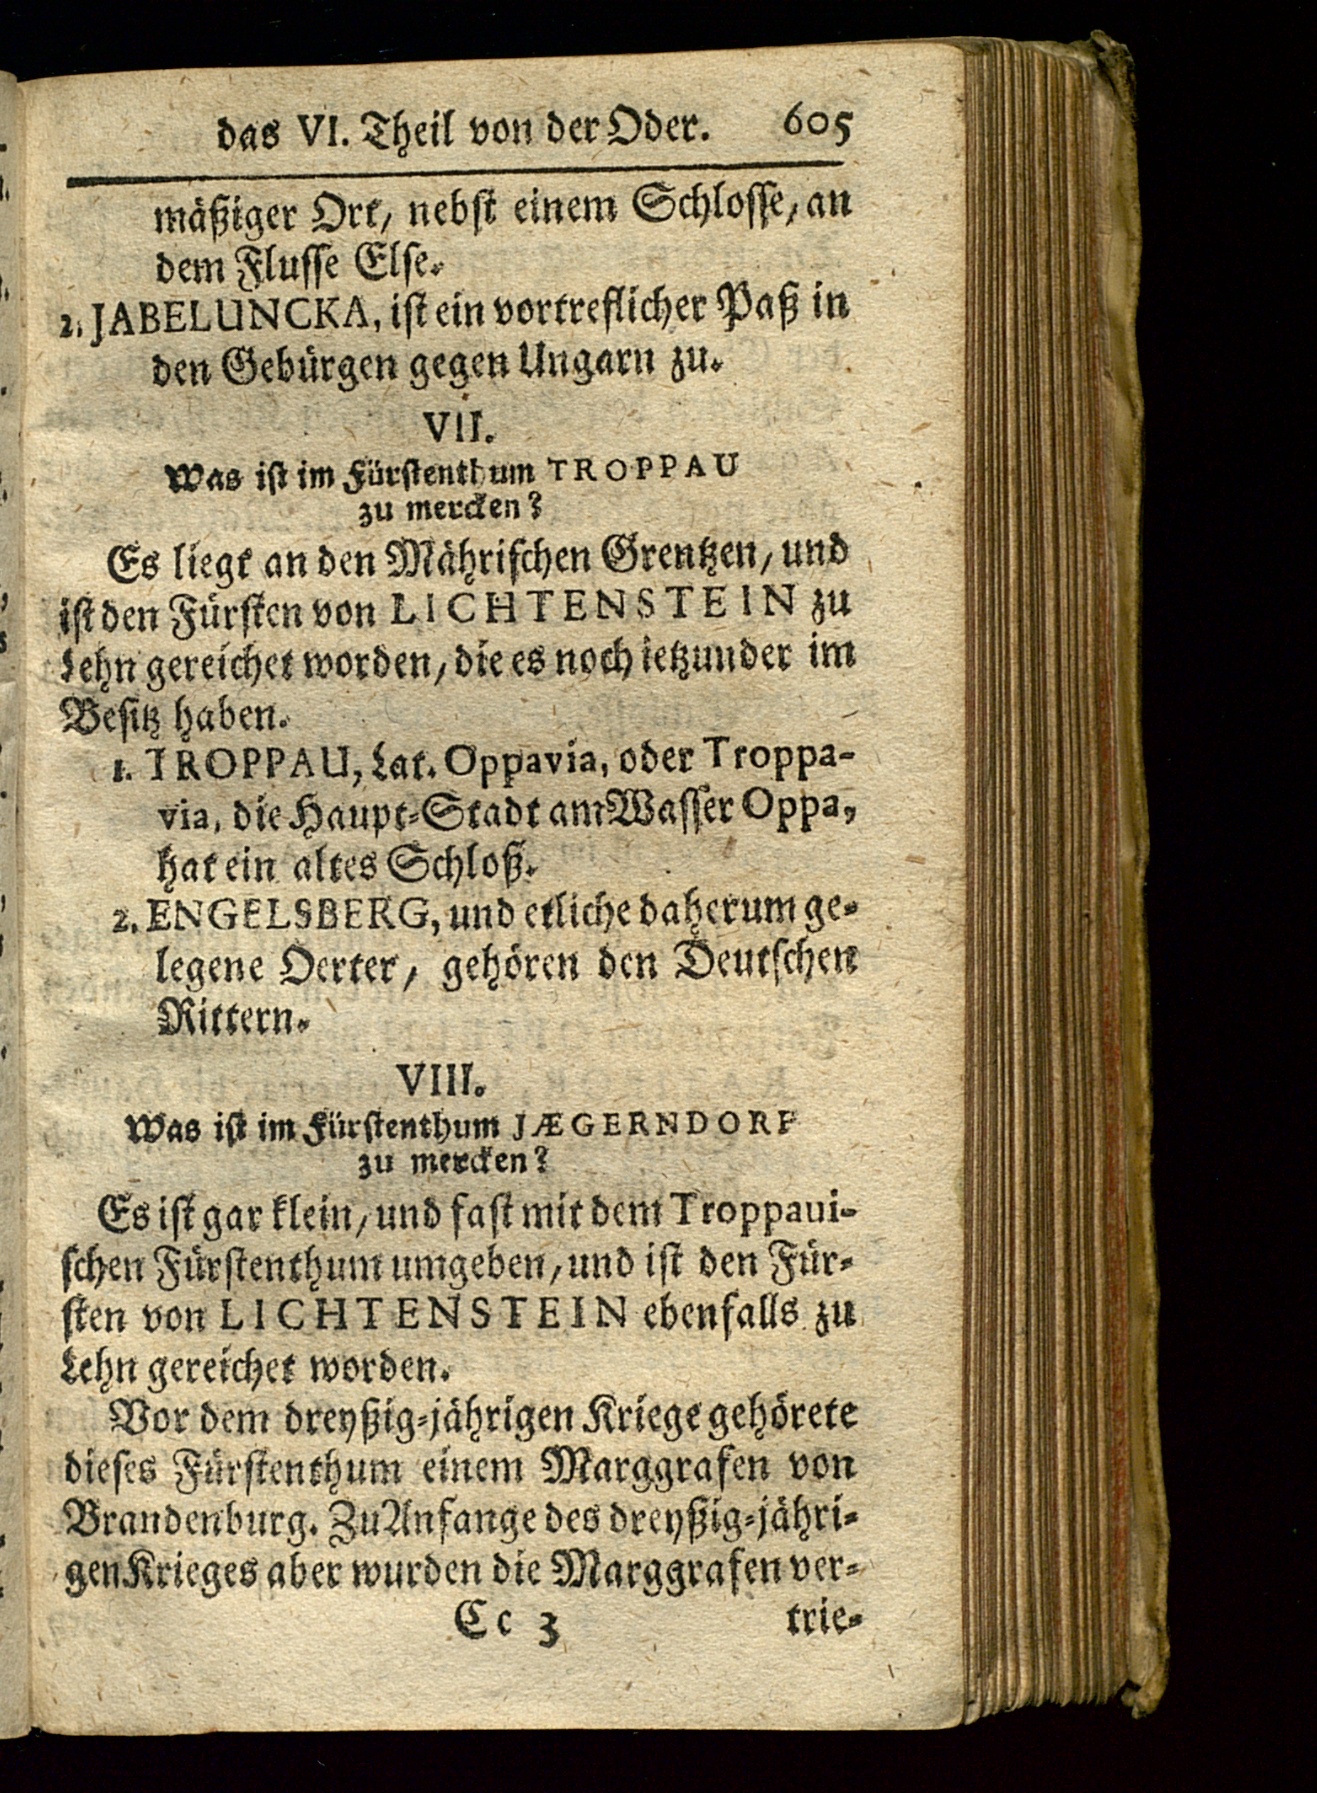 das VI. Theil von der Oder. 605
mäßiger Ort, nebst einem Schlosse, an
dem Flusse Else.
2. JABELUNCKA, ist ein vortreflicher Paß in
den Gebürgen gegen Ungarn zu.
VII.
Was ist im Fürstenthum TROPPAU
zu mercken?
Es liegt an den Mährischen Grentzen, und
ist den Fürsten von LICHTENSTEIN zu
Lehn gereichet worden, die es noch ietzunder im
Besitz haben.
1. TROPPAU, Lat. Oppavia, oder Troppa-
via, die Haupt-Stadt am Wasser Oppa,
hat ein altes Schloß.
2. ENGELSBERG, und etliche daherum ge-
legene Oerter, gehören den Deutschen
Rittern.
VIII.
Was ist im Fürstenthum JÆGERNDORF
zu mercken?
Es ist gar klein, und fast mit dem Troppaui-
schen Fürstenthum umgeben, und ist den Für-
sten von LICHTENSTEIN ebenfalls zu
Lehn gereichet worden.
Vor dem dreyßig-jährigen Kriege gehörete
dieses Fürstenthum einem Marggrafen von
Brandenburg. Zu Anfange des dreyßig-jähri-
gen Krieges aber wurden die Marggrafen ver-
Cc 3 trie-